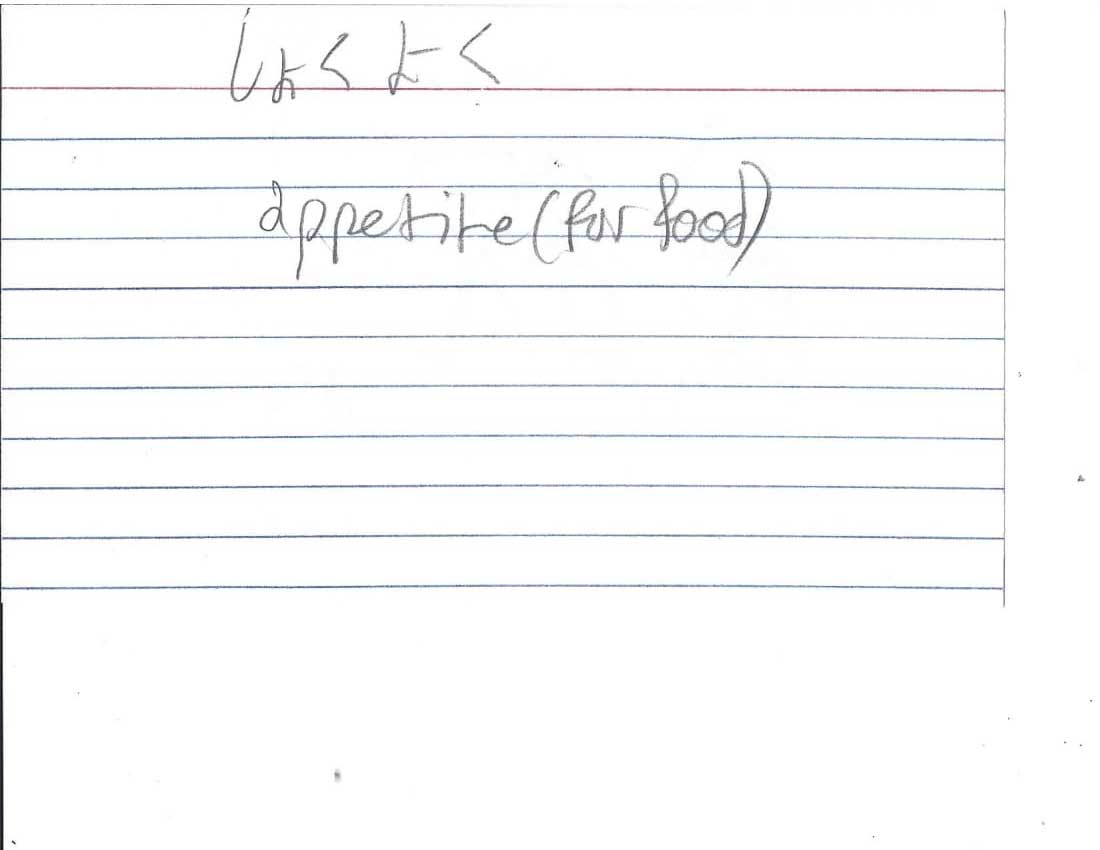 しょくよく
appetite (for food)